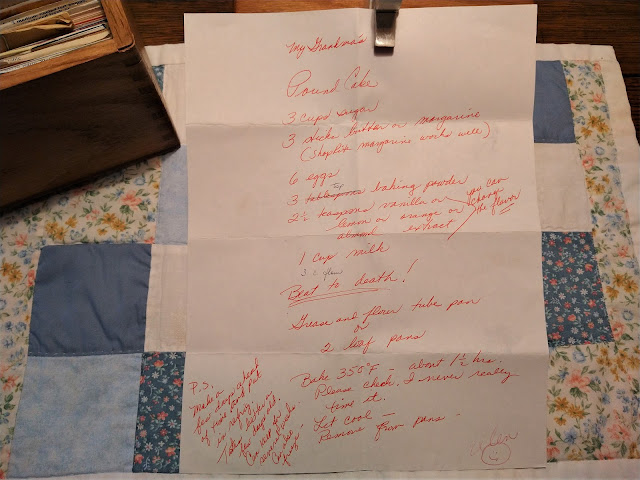 My Grandma's
Pound Cake
3 cups sugar
3 sticks butter or margarine
(Shoprite margarine works well)
6 eggs
3 tablespoons baking powder
2½ teaspoons vanilla or
lemon or orange or
almond extract
you can
change
the flavor
1 cup milk
3 c flour
Beat to death!
Grease and flour tube pan
or
2 loaf pans
Bake 350°F - about 1½ hrs.
Please check. I never really
time it.
Let cool -
Remove from pans.
P.S.
Make a
few days ahead
of time and put
in refrig.
Take
the